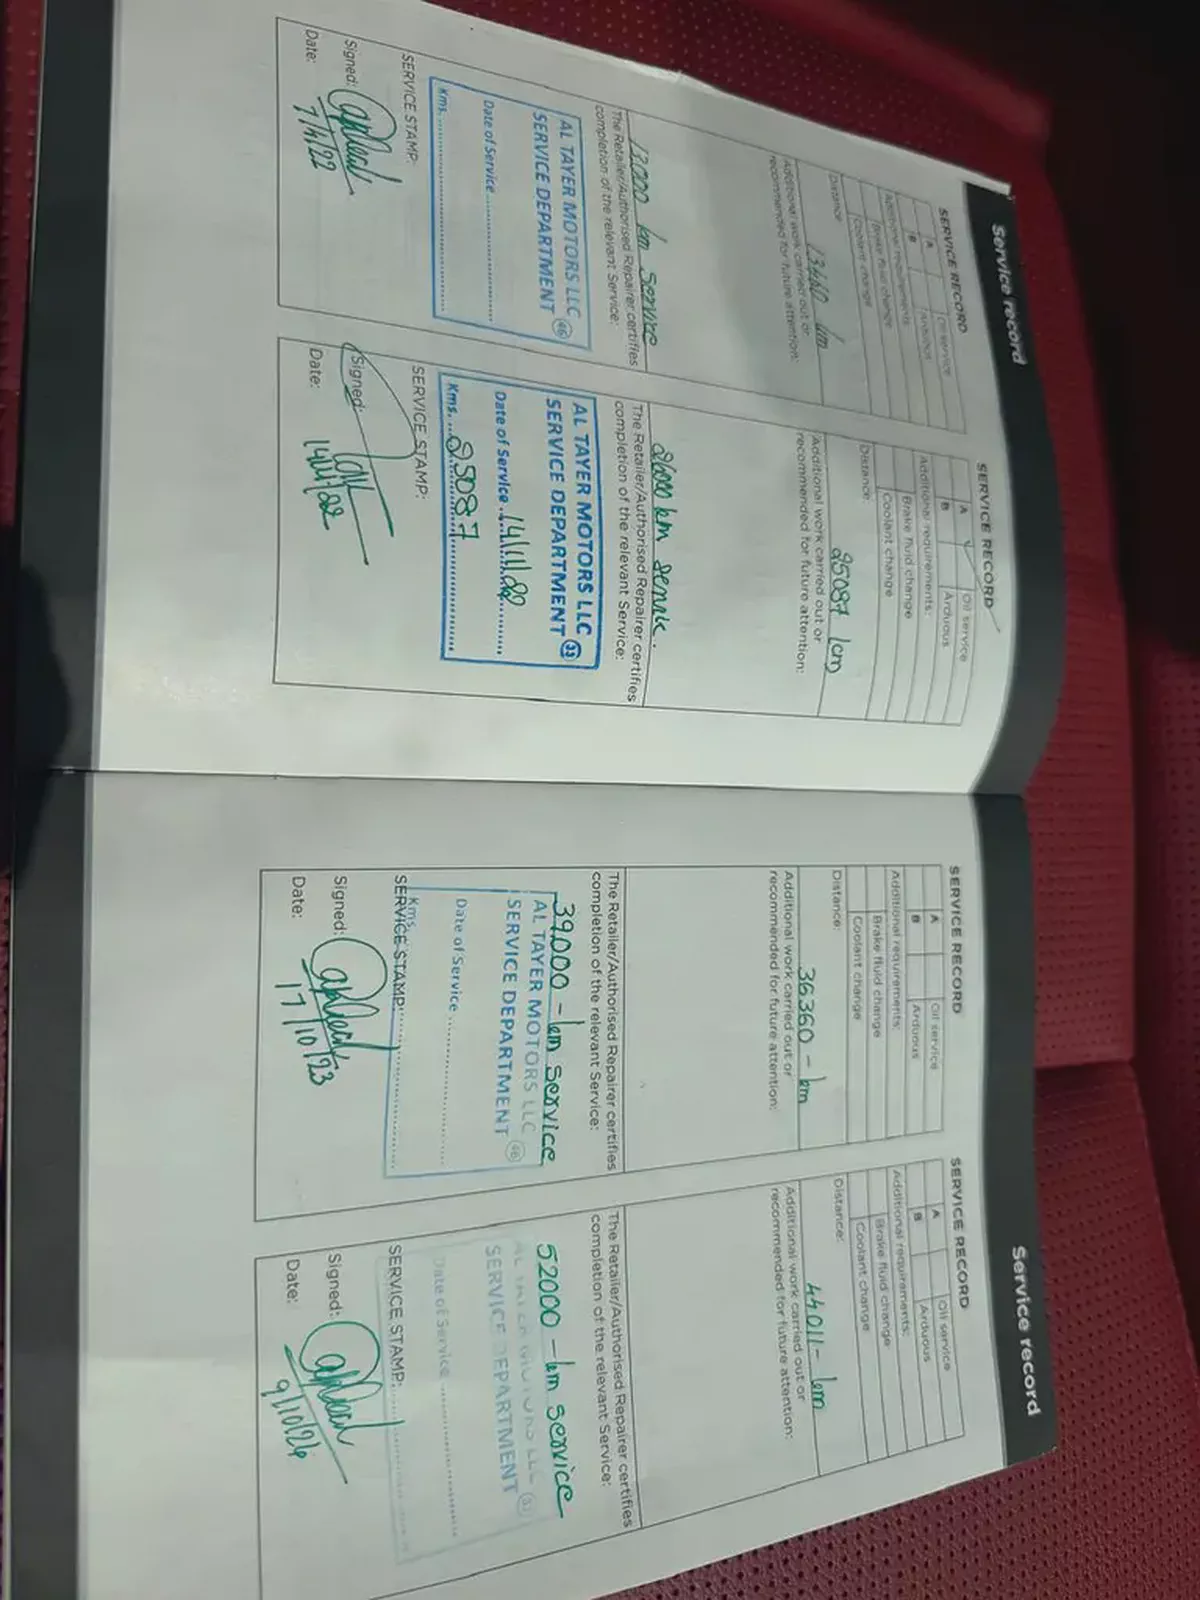 Service record
SERVICE RECORD
A
Oil service
B
Arduous
Additional requirements:
Brake fluid change
Coolant change
Distance:
13660 km
Additional work carried out or
recommended for future attention:
13,000 km service
The Retailer/Authorised Repairer certifies
completion of the relevant Service:
AL TAYER MOTORS LLC
SERVICE DEPARTMENT 46
Date of Service
Kms.
SERVICE STAMP:
Signed:
Date: 7/4/22
SERVICE RECORD
A
Oil service
B
Arduous
Additional requirements:
Brake fluid change
Coolant change
Distance:
25087 km
Additional work carried out or
recommended for future attention:
26000 km service.
The Retailer/Authorised Repairer certifies
completion of the relevant Service:
AL TAYER MOTORS LLC
SERVICE DEPARTMENT 33
Date of Service 14/11/22
Kms. 25087
SERVICE STAMP:
Signed:
Date: 14/11/22
Service record
SERVICE RECORD
A
Oil service
B
Arduous
Additional requirements:
Brake fluid change
Coolant change
Distance:
36360 - km
Additional work carried out or
recommended for future attention:
The Retailer/Authorised Repairer certifies
completion of the relevant Service:
39,000 - km service
AL TAYER MOTORS LLC
SERVICE DEPARTMENT 46
Date of Service
Kms.
SERVICE STAMP:
Signed:
Date: 17/10/23
SERVICE RECORD
A
Oil service
B
Arduous
Additional requirements:
Brake fluid change
Coolant change
Distance:
44011 - km
Additional work carried out or
recommended for future attention:
The Retailer/Authorised Repairer certifies
completion of the relevant Service:
52000 - km service
AL TAYER MOTORS LLC
SERVICE DEPARTMENT
Date of Service
SERVICE STAMP:
Signed:
Date: 9/10/24